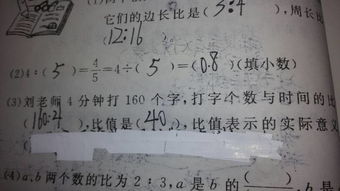 它们的边长比是(3:4),周长比
(12:16
(2)4:(5)=4/5=4÷(5)=(0.8)(填小数)
(3)刘老师4分钟打160个字,打字个数与时间的比
(160:4),比值是(40),比值表示的实际意义
(
(4)a,b两个数的比为2:3,a是b的( ),b是